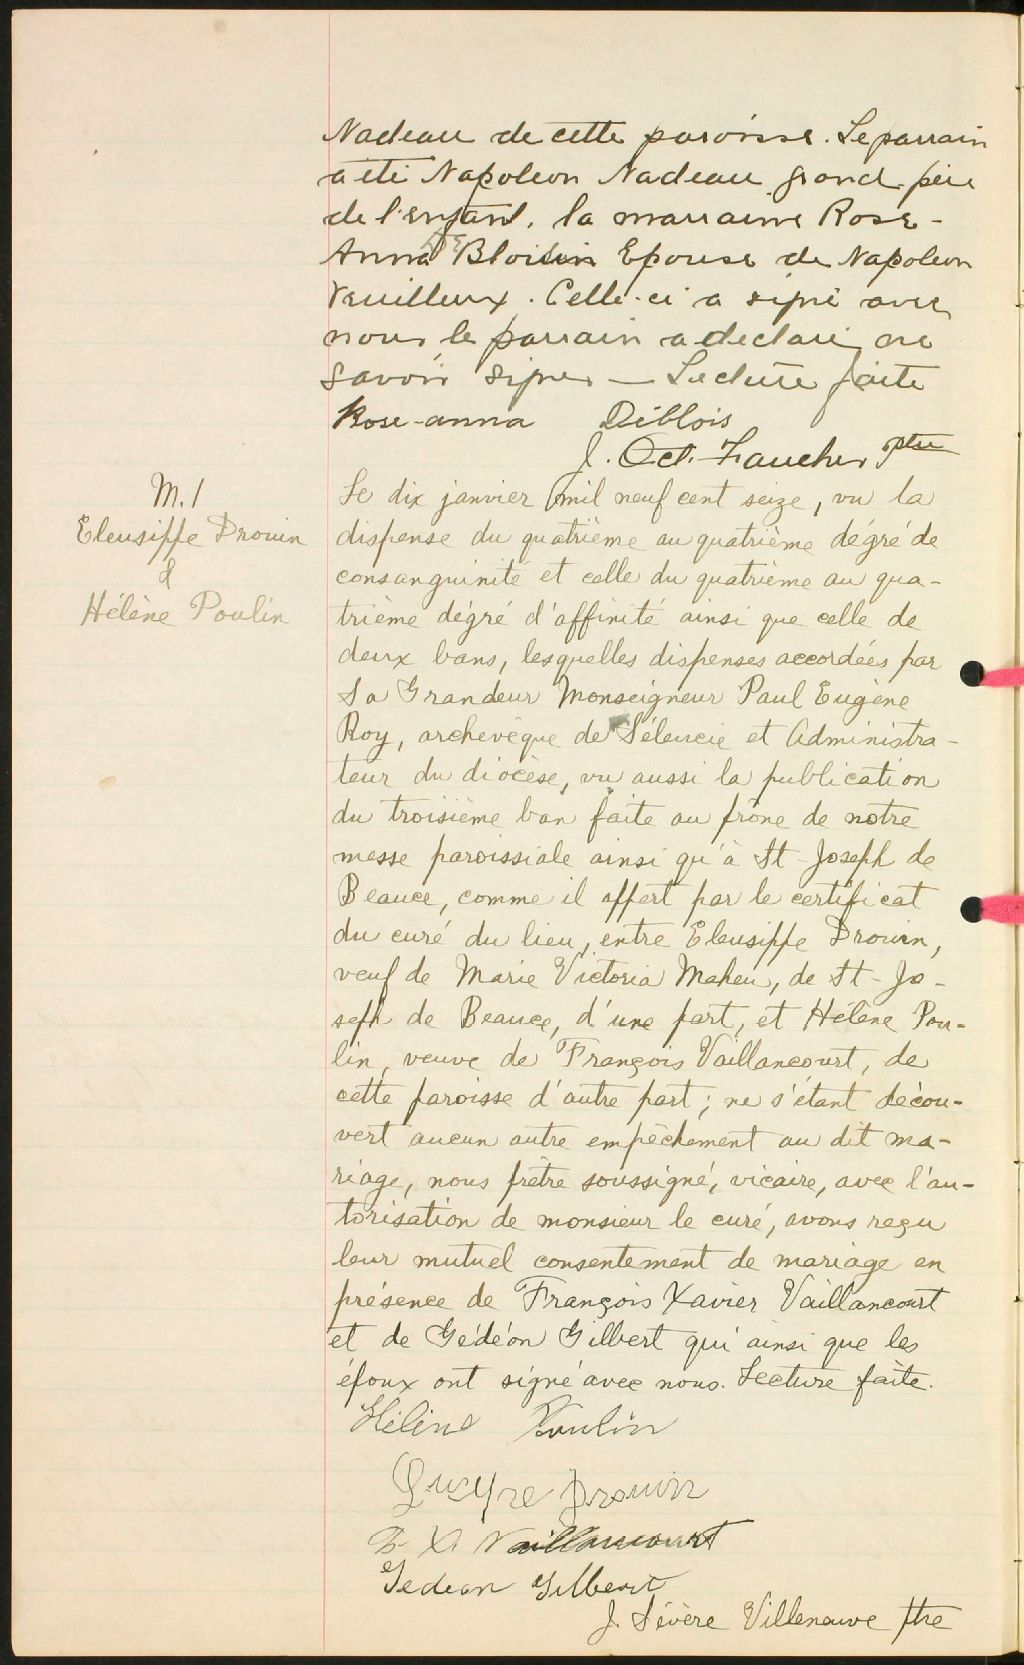 Nadeau de cette paroisse. Le parrain
a été Napoleon Nadeau grand-père
de l'enfant, la marraine Rose-
Anna De Bloisin Epouse de Napoleon
Veuilleux. Celle-ci a signé avec
nous le parrain a declaré ne
savoir signer — Lecture faite
Rose-anna Deblois
J. Oct. Faucher ptre
M. 1
Eleusiffe Drouin
&
Hélène Poulin
Le dix janvier mil neuf cent seize, vu la
dispense du quatrième au quatrième dégré de
consanguinité et celle du quatrième au qua-
trième dégré d'affinité ainsi que celle de
deux bans, lesquelles dispenses accordées par
Sa Grandeur Monseigneur Paul Eugène
Roy, archevêque de Séleucie et Administra-
teur du diocèse, vu aussi la publication
du troisième ban faite au prône de notre
messe paroissiale ainsi qu'à St-Joseph de
Beauce, comme il appert par le certificat
du curé du lieu, entre Eleusippe Drouin,
veuf de Marie Victoria Maheu, de St-Jo-
seph de Beauce, d'une part, et Hélène Pou-
lin, veuve de François Vaillancourt, de
cette paroisse d'autre part; ne s'étant décou-
vert aucun autre empêchement au dit ma-
riage, nous prêtre soussigné, vicaire, avec l'au-
torisation de monsieur le curé, avons reçu
leur mutuel consentement de mariage en
présence de François Xavier Vaillancourt
et de Gédéon Gilbert qui ainsi que les
époux ont signé avec nous. Lecture faite.
Hélène Poulin
Drouin
F. X. Vaillancourt
Gedeon Gilbert
J. Sévère Villeneuve ptre